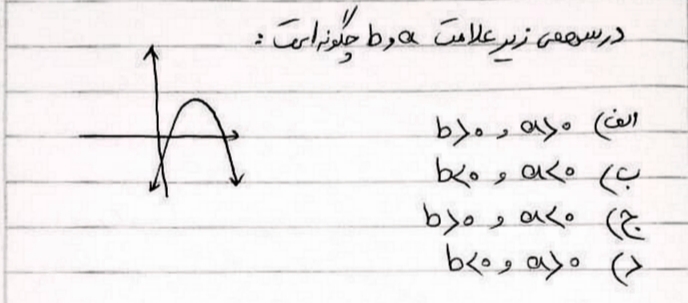 در سهمی زیر علامت a و b چگونه است :
الف) a>0 و b>0
ب) a<0 و b<0
ج) a<0 و b>0
د) a>0 و b<0